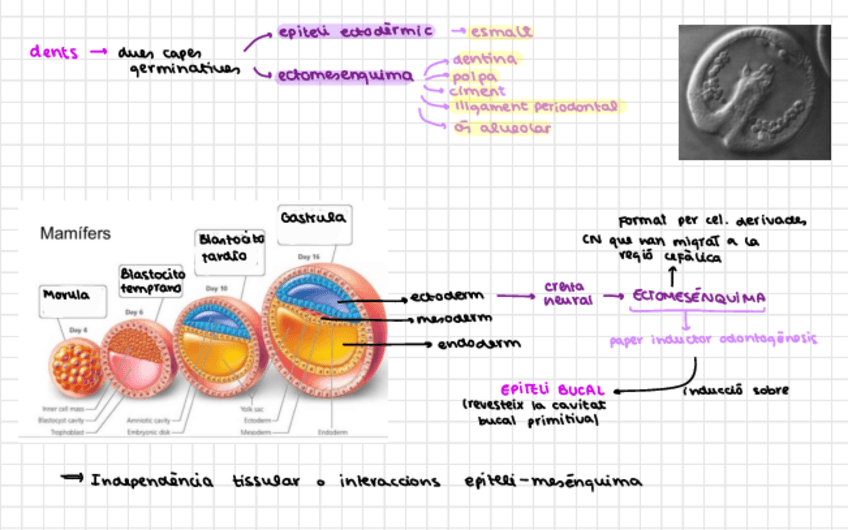 dents → dues capes
germinatives
epiteli ectodèrmic → esmalt
ectomesenquima
dentina
polpa
ciment
lligament periodontal
os alveolar
Mamífers
Morula
Day 4
Blastocito
temprano
Day 6
Blastocito
tardío
Day 10
Gastrula
Day 16
Inner cell mass
Blastocyst cavity
Trophoblast
Amniotic cavity
Embryonic disk
Yolk sac
Ectoderm
Mesoderm
Endoderm
ectoderm
mesoderm
endoderm
cresta
neural
ECTOMESÈNQUIMA
Format per cel. derivades
CN que han migrat a la
regió cefàlica
paper inductor odontogènesis
inducció sobre
EPITELI BUCAL
(revesteix la cavitat
bucal primitiva)
→ Independència tissular o interaccions epiteli-mesènquima